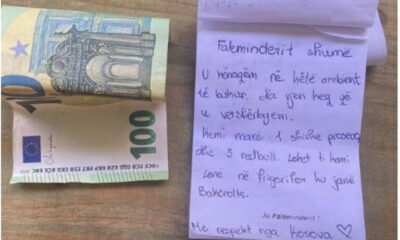 100
Faleminderit shumë
U kënaqëm në këtë ambient
të bukur. Na vjen keq që
u vetshërbyem.
Kemi marë 1 shishe
dhe 3 redbull. Leket ti kemi
lënë në frigorifer ku janë
Bakerolls.
Ju Faleminderit!
Me respekt nga Kosova ♡